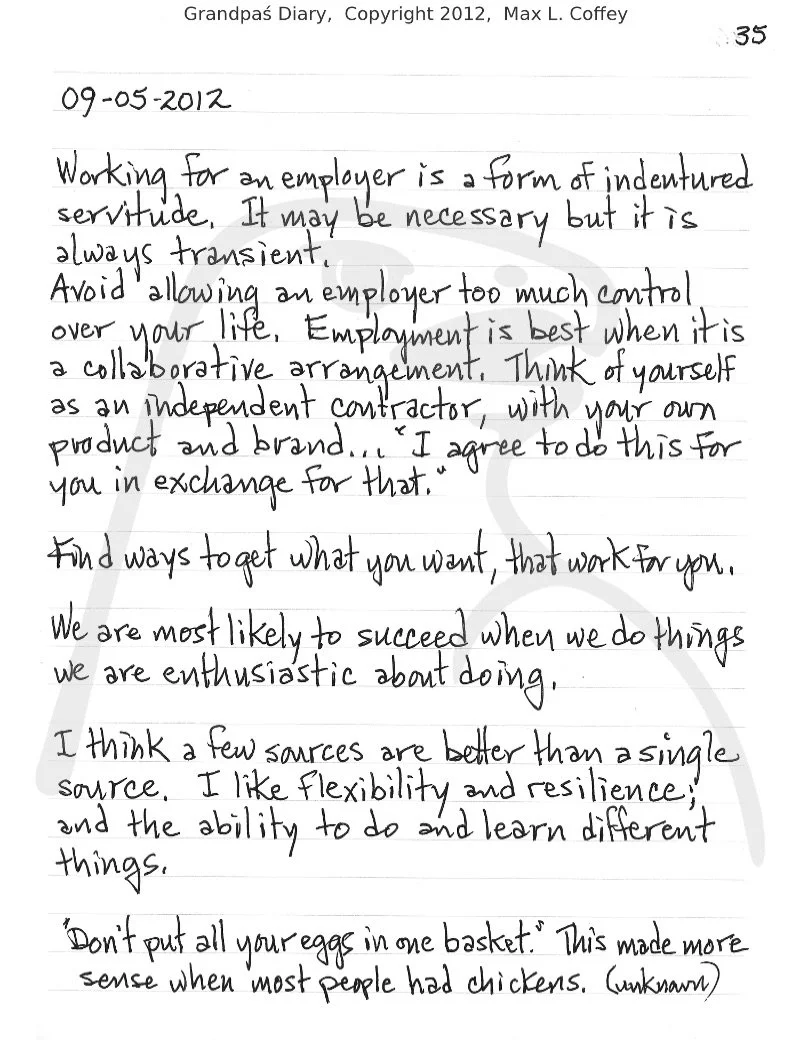 Grandpaś Diary, Copyright 2012, Max L. Coffey
35
09-05-2012
Working for an employer is a form of indentured
servitude. It may be necessary but it is
always transient.
Avoid allowing an employer too much control
over your life. Employment is best when it is
a collaborative arrangement. Think of yourself
as an independent contractor, with your own
product and brand... "I agree to do this for
you in exchange for that."
Find ways to get what you want, that work for you.
We are most likely to succeed when we do things
we are enthusiastic about doing.
I think a few sources are better than a single
source. I like flexibility and resilience;
and the ability to do and learn different
things.
"Don't put all your eggs in one basket." This made more
sense when most people had chickens. (unknown)